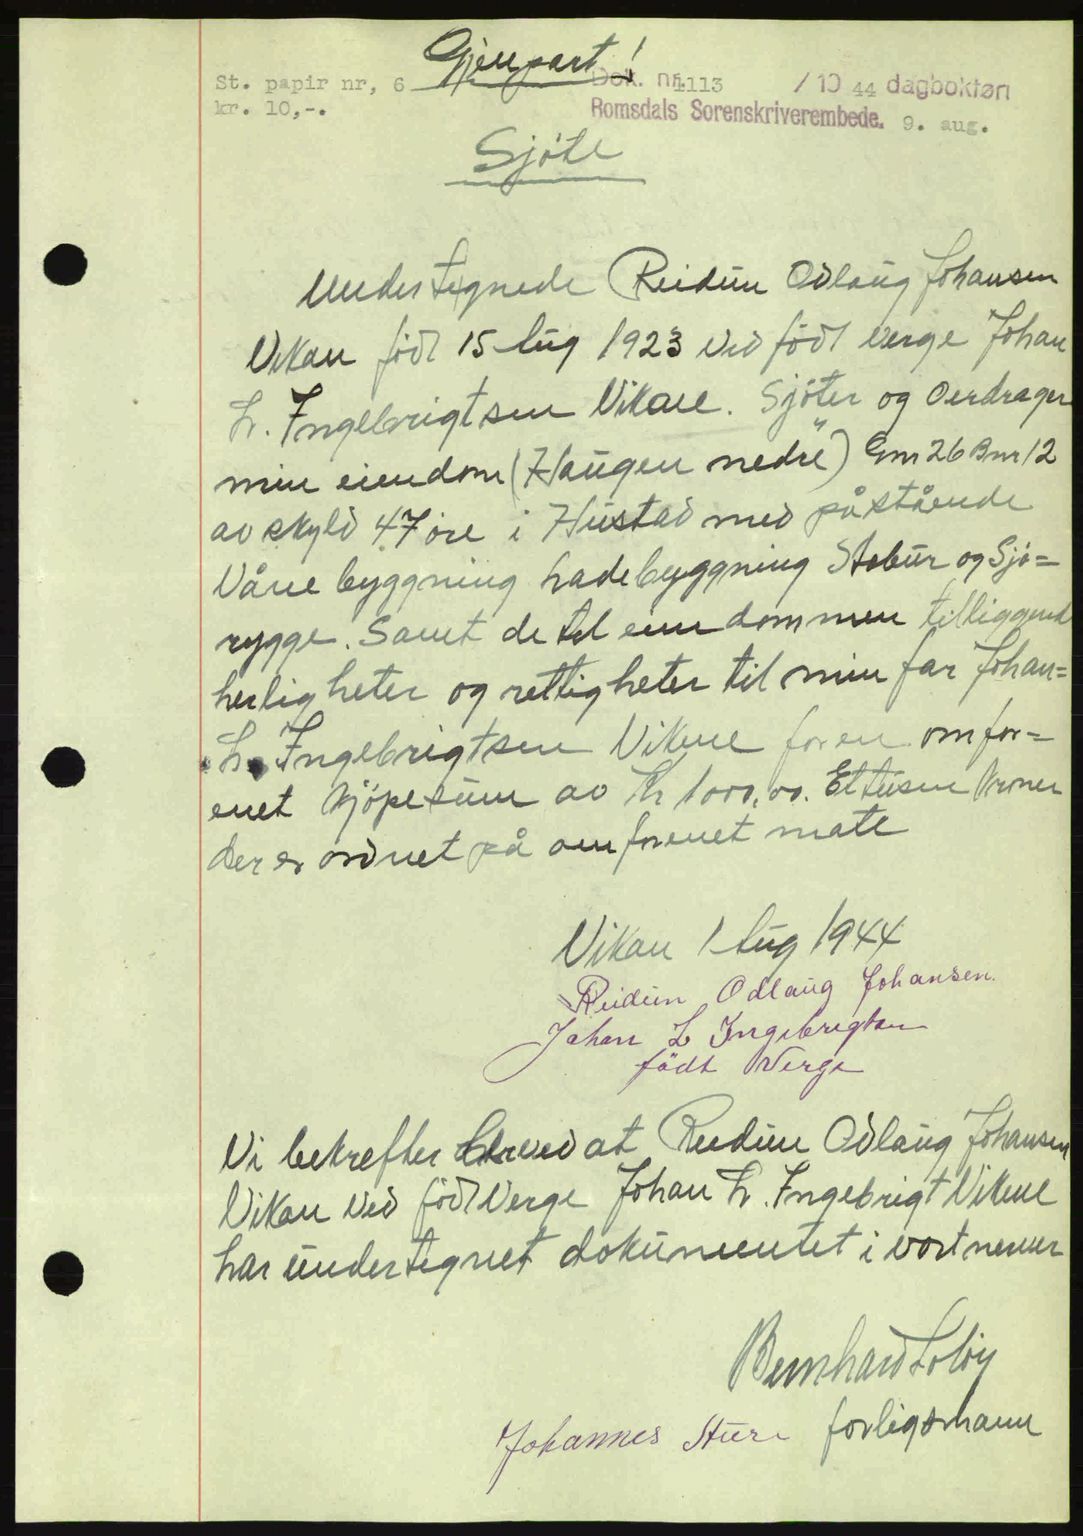 Gjenpart!
St. papir nr, 6 Dok. nr. 1113 / 10 44 dagbokført
kr. 10,-. Romsdals Sorenskriverembede. 9. aug.
Sjöte
Undertegnede Reidun Odlaug Johansen
Vikan född 15 Aug 1923 Ved född verge Johan
L. Ingebrigtsen Vikan. Sjöter og Overdrager
min eiendom (Haugen nedre") Gnr 26 Bnr 12
av skyld 47 øre i Hustad med påstående
Våne byggning Ladebyggning Stabur og Sjø=
rygge. Samt de til eiendommen tilliggende
herligheter og rettigheter til min far Johan=
L. Ingebrigtsen Vikene for en omfor=
enet kjöpesum av Kr 1000,00. Ettusen Kroner
der er ordnet på omforenet mate
Vikan 1 Aug 1944
Reidun Odlaug Johansen.
Johan L Ingebrigtsen
födt Verge
Vi bekrefter herved at Reidun Odlaug Johansen
Vikan Ved född Verge Johan L. Ingebrigt Vikene
har undertegnet dokumentet i vort nerver
Bernhard Toløy
Johannes Sture forligsmann